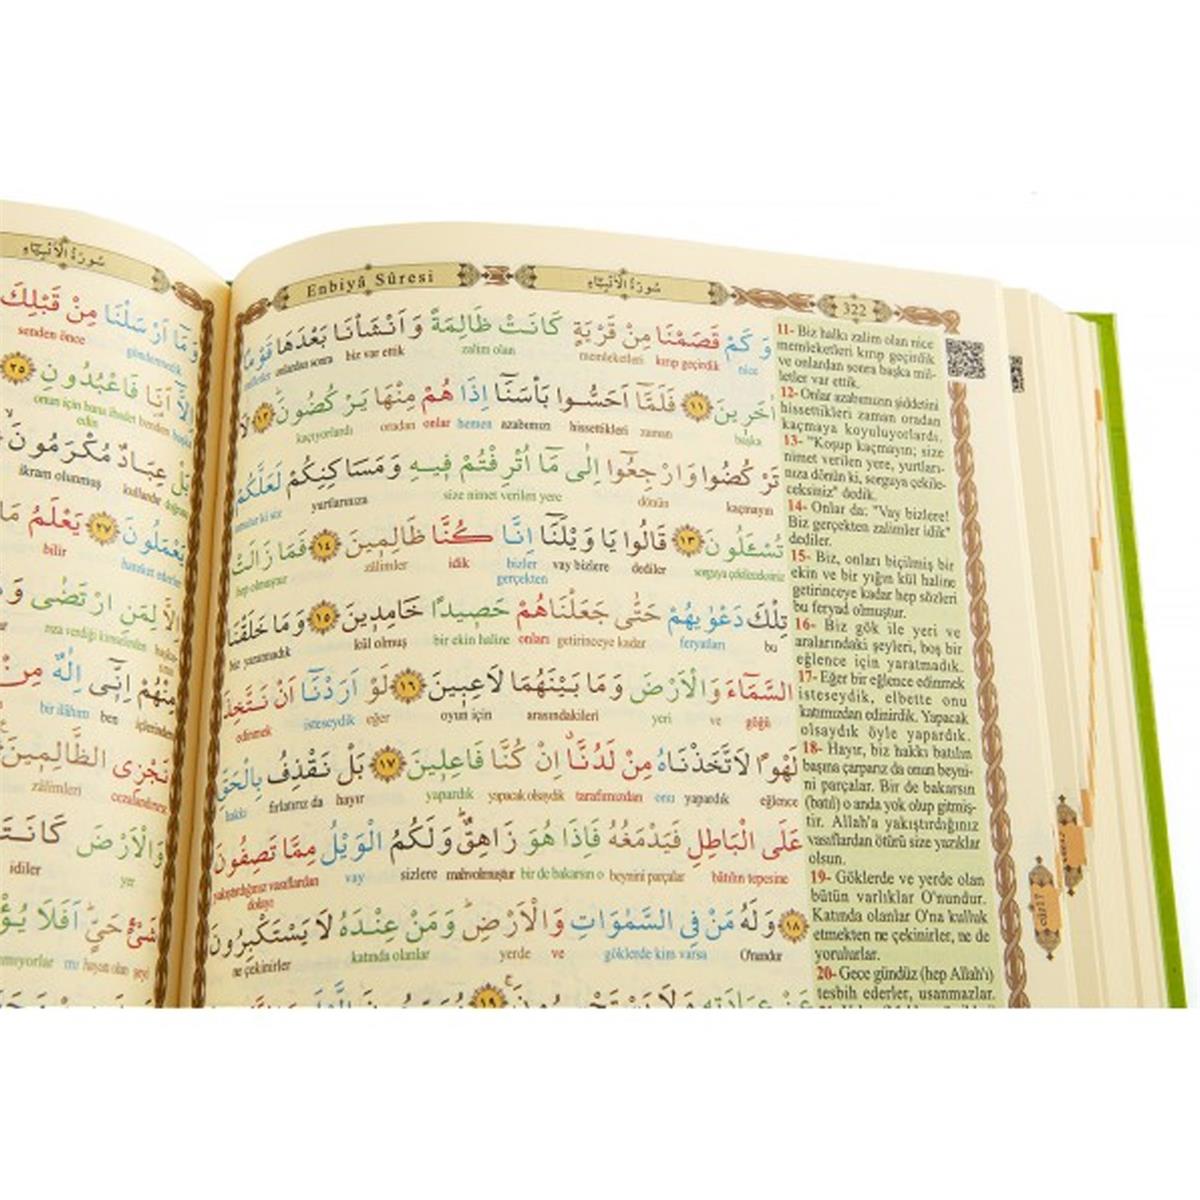 سُورَةُ الْاَنْبِيَاءِ
وَمَٓا اَرْسَلْنَا مِنْ قَبْلِكَ
senden önce göndermedik
٢٥ اِلَّٓا اَنَا فَاعْبُدُونِ
بَلْ عِبَادٌ مُكْرَمُونَ
ikram olunmuş kullardır
يَعْمَلُونَ ٢٧ يَعْلَمُ مَا
bilir hareket ederler
اِلَّا لِمَنِ ارْتَضٰى
rıza verdiği kimselerden
مِنْهُمْ اِنّ۪ٓي اِلٰهٌ مِنْ
bir ilâhım ben içlerinden
نَجْزِي الظَّالِم۪ينَ
zâlimleri cezalandırırız
وَالْاَرْضَ كَانَتَا
idiler yer
شَيْءٍ حَيٍّ اَفَلَا
Enbiyâ Sûresi سُورَةُ الْاَنْبِيَاءِ 322
وَكَمْ قَصَمْنَا مِنْ قَرْيَةٍ كَانَتْ ظَالِمَةً وَاَنْشَأْنَا بَعْدَهَا قَوْمًا
nice kırıp geçirdik memleketleri zalim olan bir var ettik onlardan sonra milletler
اٰخَر۪ينَ ١١ فَلَمَّٓا اَحَسُّوا بَأْسَنَٓا اِذَا هُمْ مِنْهَا يَرْكُضُونَ ١٢ لَا
başka zaman hissettikleri azabımızın hemen onlar oradan kaçıyorlardı
تَرْكُضُوا وَارْجِعُٓوا اِلٰى مَٓا اُتْرِفْتُمْ ف۪يهِ وَمَسَاكِنِكُمْ لَعَلَّكُمْ
kaçmayın dönün size nimet verilen yere yurtlarınıza umulur ki siz
تُسْـَٔلُونَ ١٣ قَالُوا يَا وَيْلَنَٓا اِنَّا كُنَّا ظَالِم۪ينَ ١٤ فَمَا زَالَتْ
sorguya çekileceksiniz dediler vay bizlere bizler gerçekten idik zâlimler hep olmuştur
تِلْكَ دَعْوٰيهُمْ حَتّٰى جَعَلْنَاهُمْ حَص۪يدًا خَامِد۪ينَ ١٥ وَمَا خَلَقْنَا
bu feryatları getirinceye kadar onları bir ekin haline kül olmuş biz yaratmadık
السَّمَٓاءَ وَالْاَرْضَ وَمَا بَيْنَهُمَا لَاعِب۪ينَ ١٦ لَوْ اَرَدْنَٓا اَنْ نَتَّخِذَ
göğü ve yeri arasındakileri oyun için eğer isteseydik edinmek
لَهْوًا لَاتَّخَذْنَاهُ مِنْ لَدُنَّٓا اِنْ كُنَّا فَاعِل۪ينَ ١٧ بَلْ نَقْذِفُ بِالْحَقِّ
eğlence yapardık onu tarafımızdan yapacak olsaydık yapardık hayır fırlatırız da hakkı
عَلَى الْبَاطِلِ فَيَدْمَغُهُ فَاِذَا هُوَ زَاهِقٌ وَلَكُمُ الْوَيْلُ مِمَّا تَصِفُونَ
bâtılın tepesine beynini parçalar bir de bakarsın o mahvolmuştur sizlere vay yakıştırdığınız vasıflardan dolayı
١٨ وَلَهُ مَنْ فِي السَّمٰوَاتِ وَالْاَرْضِ وَمَنْ عِنْدَهُ لَا يَسْتَكْبِرُونَ
O'nundur göklerde kim varsa ve yerde katında olanlar ne çekinirler
عَنْ عِبَادَتِه۪ وَلَا يَسْتَحْسِرُونَ ١٩
11- Biz halkı zalim olan nice
memleketleri kırıp geçirdik
ve onlardan sonra başka mil-
letler var ettik.
12- Onlar azabımızın şiddetini
hissettikleri zaman oradan
kaçmaya koyuluyorlardı.
13- "Koşup kaçmayın; size
nimet verilen yere, yurtları-
nıza dönün ki, sorguya çekile-
ceksiniz" dedik.
14- Onlar da: "Vay bizlere!
Biz gerçekten zalimler idik"
dediler.
15- Biz, onları biçilmiş bir
ekin ve bir yığın kül haline
getirinceye kadar hep sözleri
bu feryad olmuştur.
16- Biz gök ile yeri ve
aralarındaki şeyleri, boş bir
eğlence için yaratmadık.
17- Eğer bir eğlence edinmek
isteseydik, elbette onu
katımızdan edinirdik. Yapacak
olsaydık öyle yapardık.
18- Hayır, biz hakkı batılın
başına çarparız da onun beyni-
ni parçalar. Bir de bakarsın
(batıl) o anda yok olup gitmiş-
tir. Allah'a yakıştırdığınız
vasıflardan ötürü size yazıklar
olsun.
19- Göklerde ve yerde olan
bütün varlıklar O'nundur.
Katında olanlar O'na kulluk
etmekten ne çekinirler, ne de
yorulurlar.
20- Gece gündüz (hep Allah'ı)
tesbih ederler, usanmazlar.
cüz 17